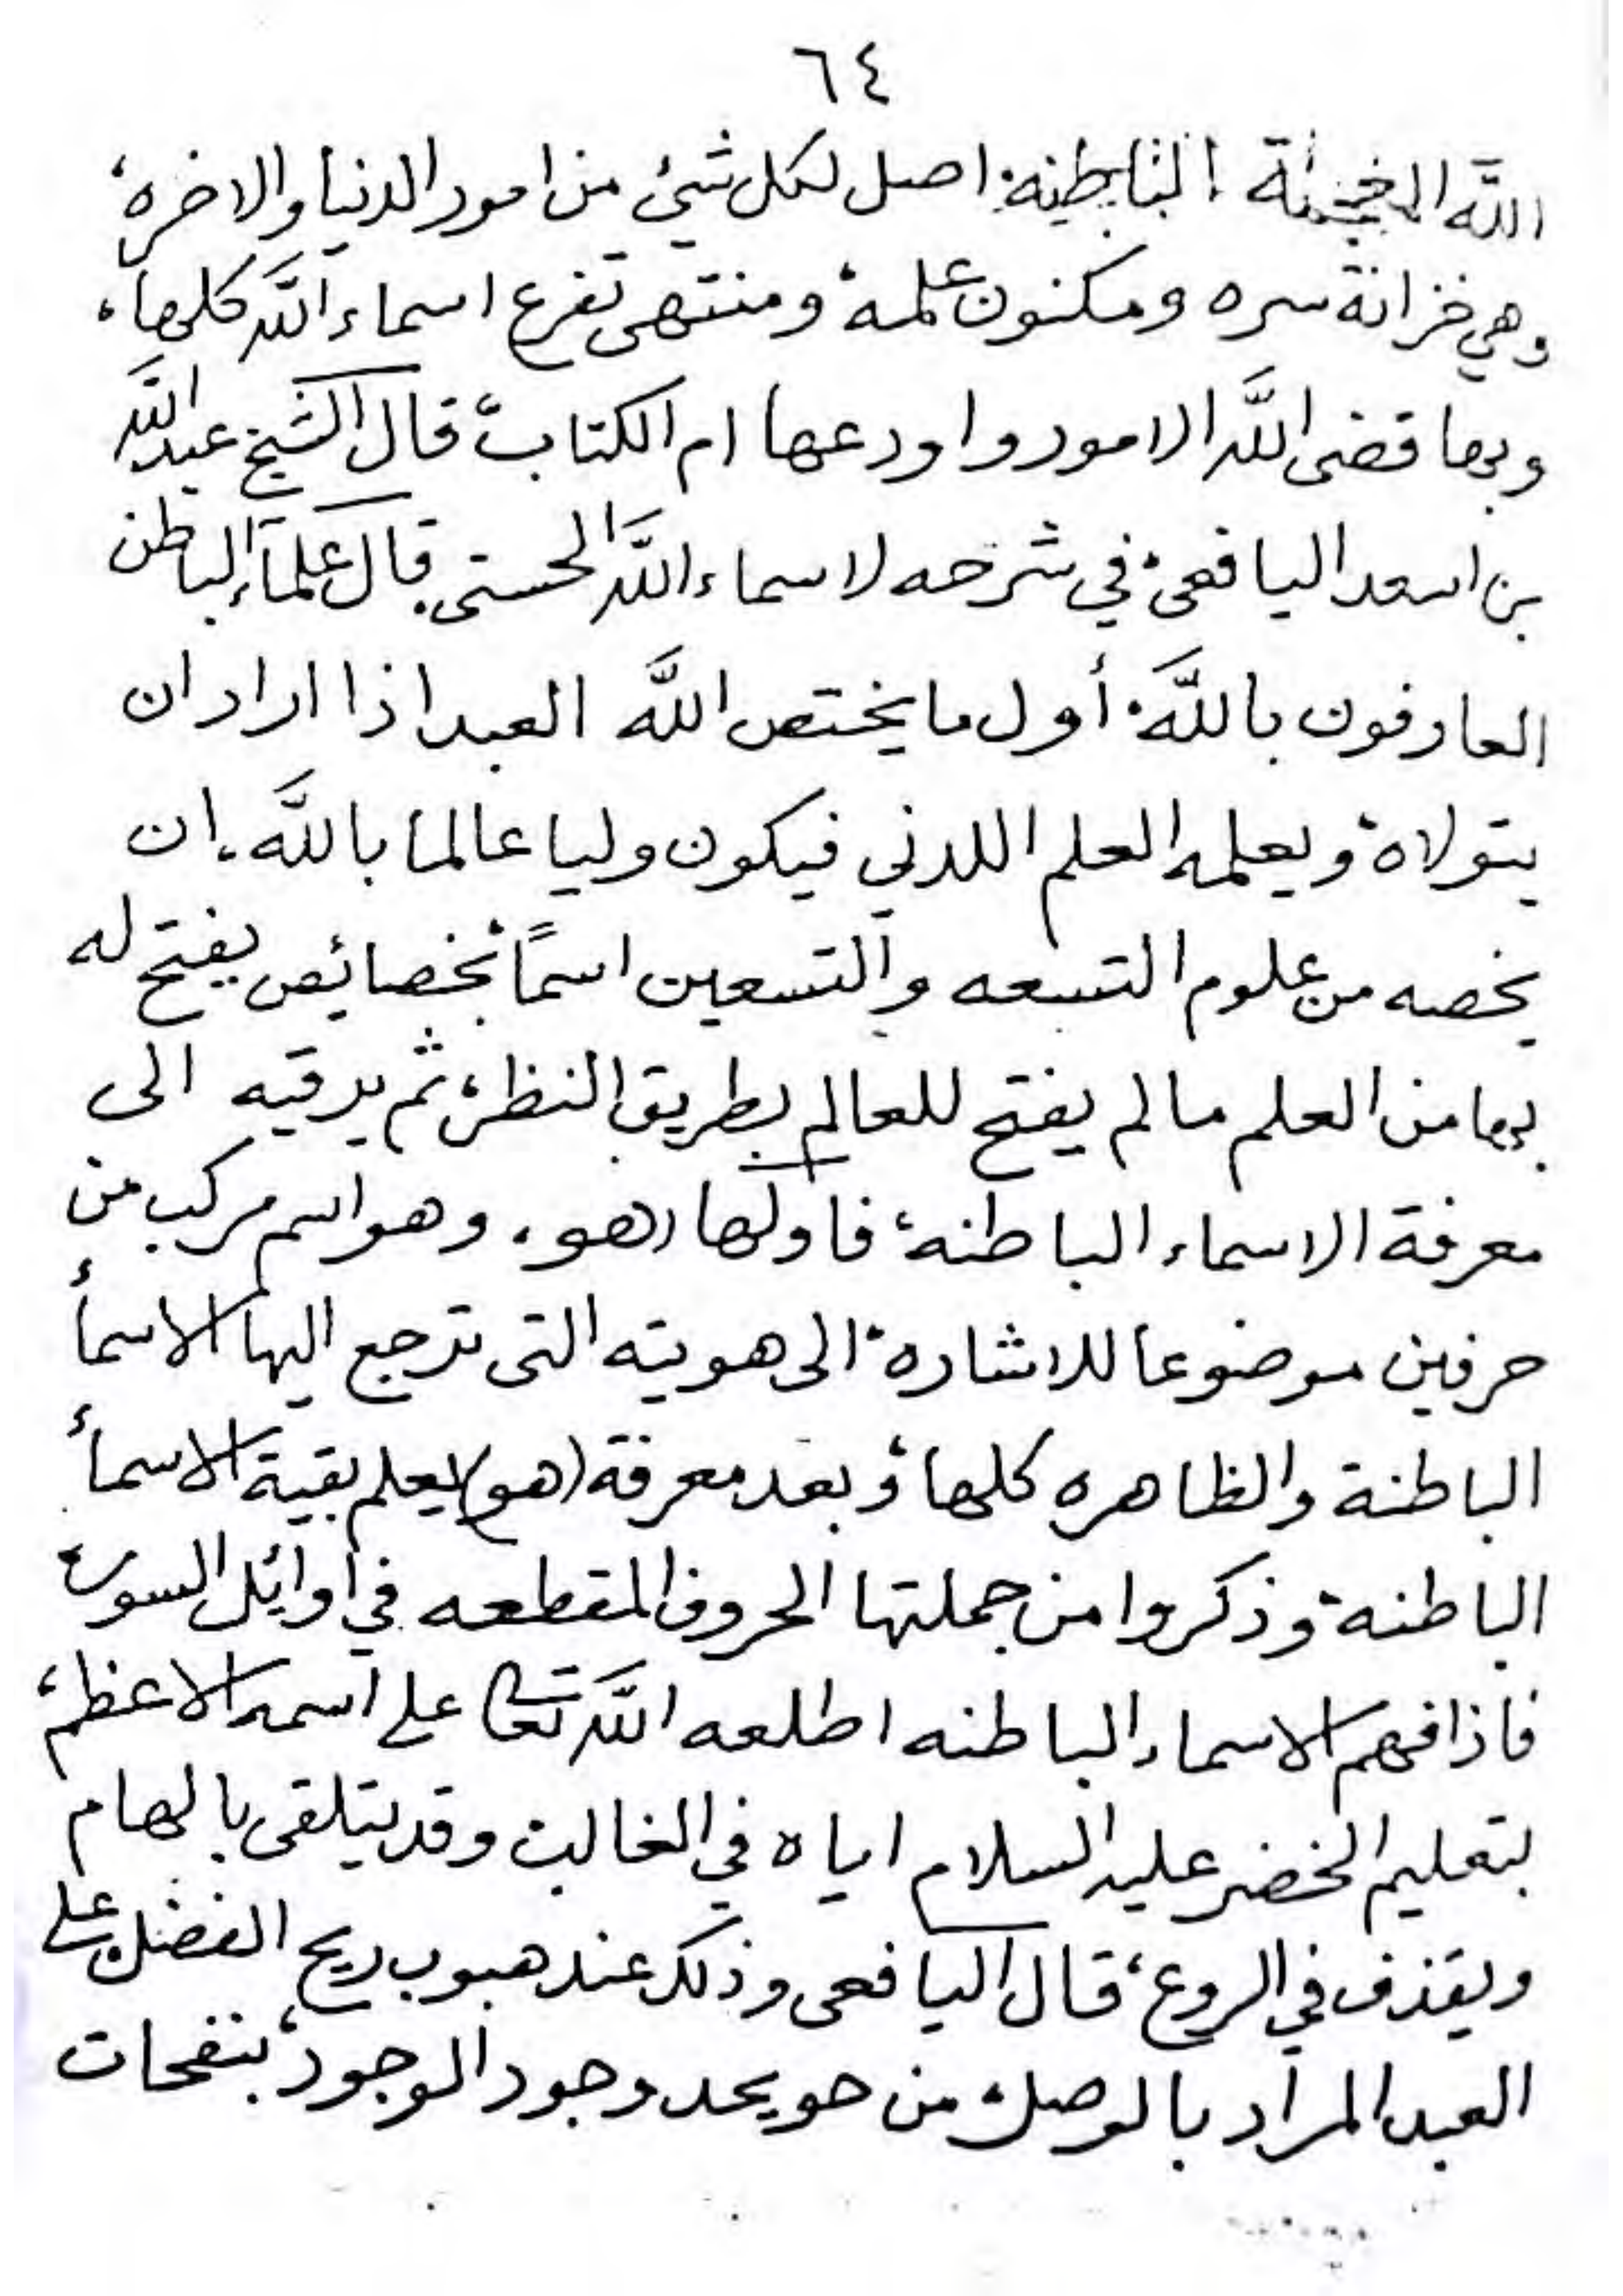 ٦٤
الله المخزونة الباطنة اصل لكل شيئ من امور الدنيا والاخره،
وهي خزانة سره ومكنون علمه، ومنتهى تفرع اسماء الله كلها،
وبها قضى الله الامور واودعها ام الكتاب، قال الشيخ عبد الله
بن اسعد اليافعى، في شرحه لاسماء الله الحسنى، قال علماء الباطن
العارفون بالله، أول ما يختص الله العبد اذا اراد ان
يتولاه، ويعلمه العلم اللدني فيكون وليا عالما بالله، ان
يخصه من علوم التسعه والتسعين اسمًا، بخصائص يفتح له
بها من العلم ما لم يفتح للعالم بطريق النظر، ثم يرقيه الى
معرفة الاسماء الباطنه، فاولها (هو، وهو اسم مركب من
حرفين موضوعا للاشاره، الى هويته التى ترجع اليها الاسمأ
الباطنة والظاهره كلها، وبعد معرفة (هو) يعلم بقية الاسمأ
الباطنه، وذكروا من جملتها الحروف المقطعه في اوائل السور،
فاذا فهم الاسماء الباطنه اطلعه الله تعالى على اسمه الاعظم،
بتعليم الخضر عليه السلام اياه في الغالب، وقد يتلقى بالهام
ويقذف في الروع، قال اليافعى وذلك عند هبوب ريح الفضل، على
العبد المراد بالوصل، من وجود الوجود، بنفحات